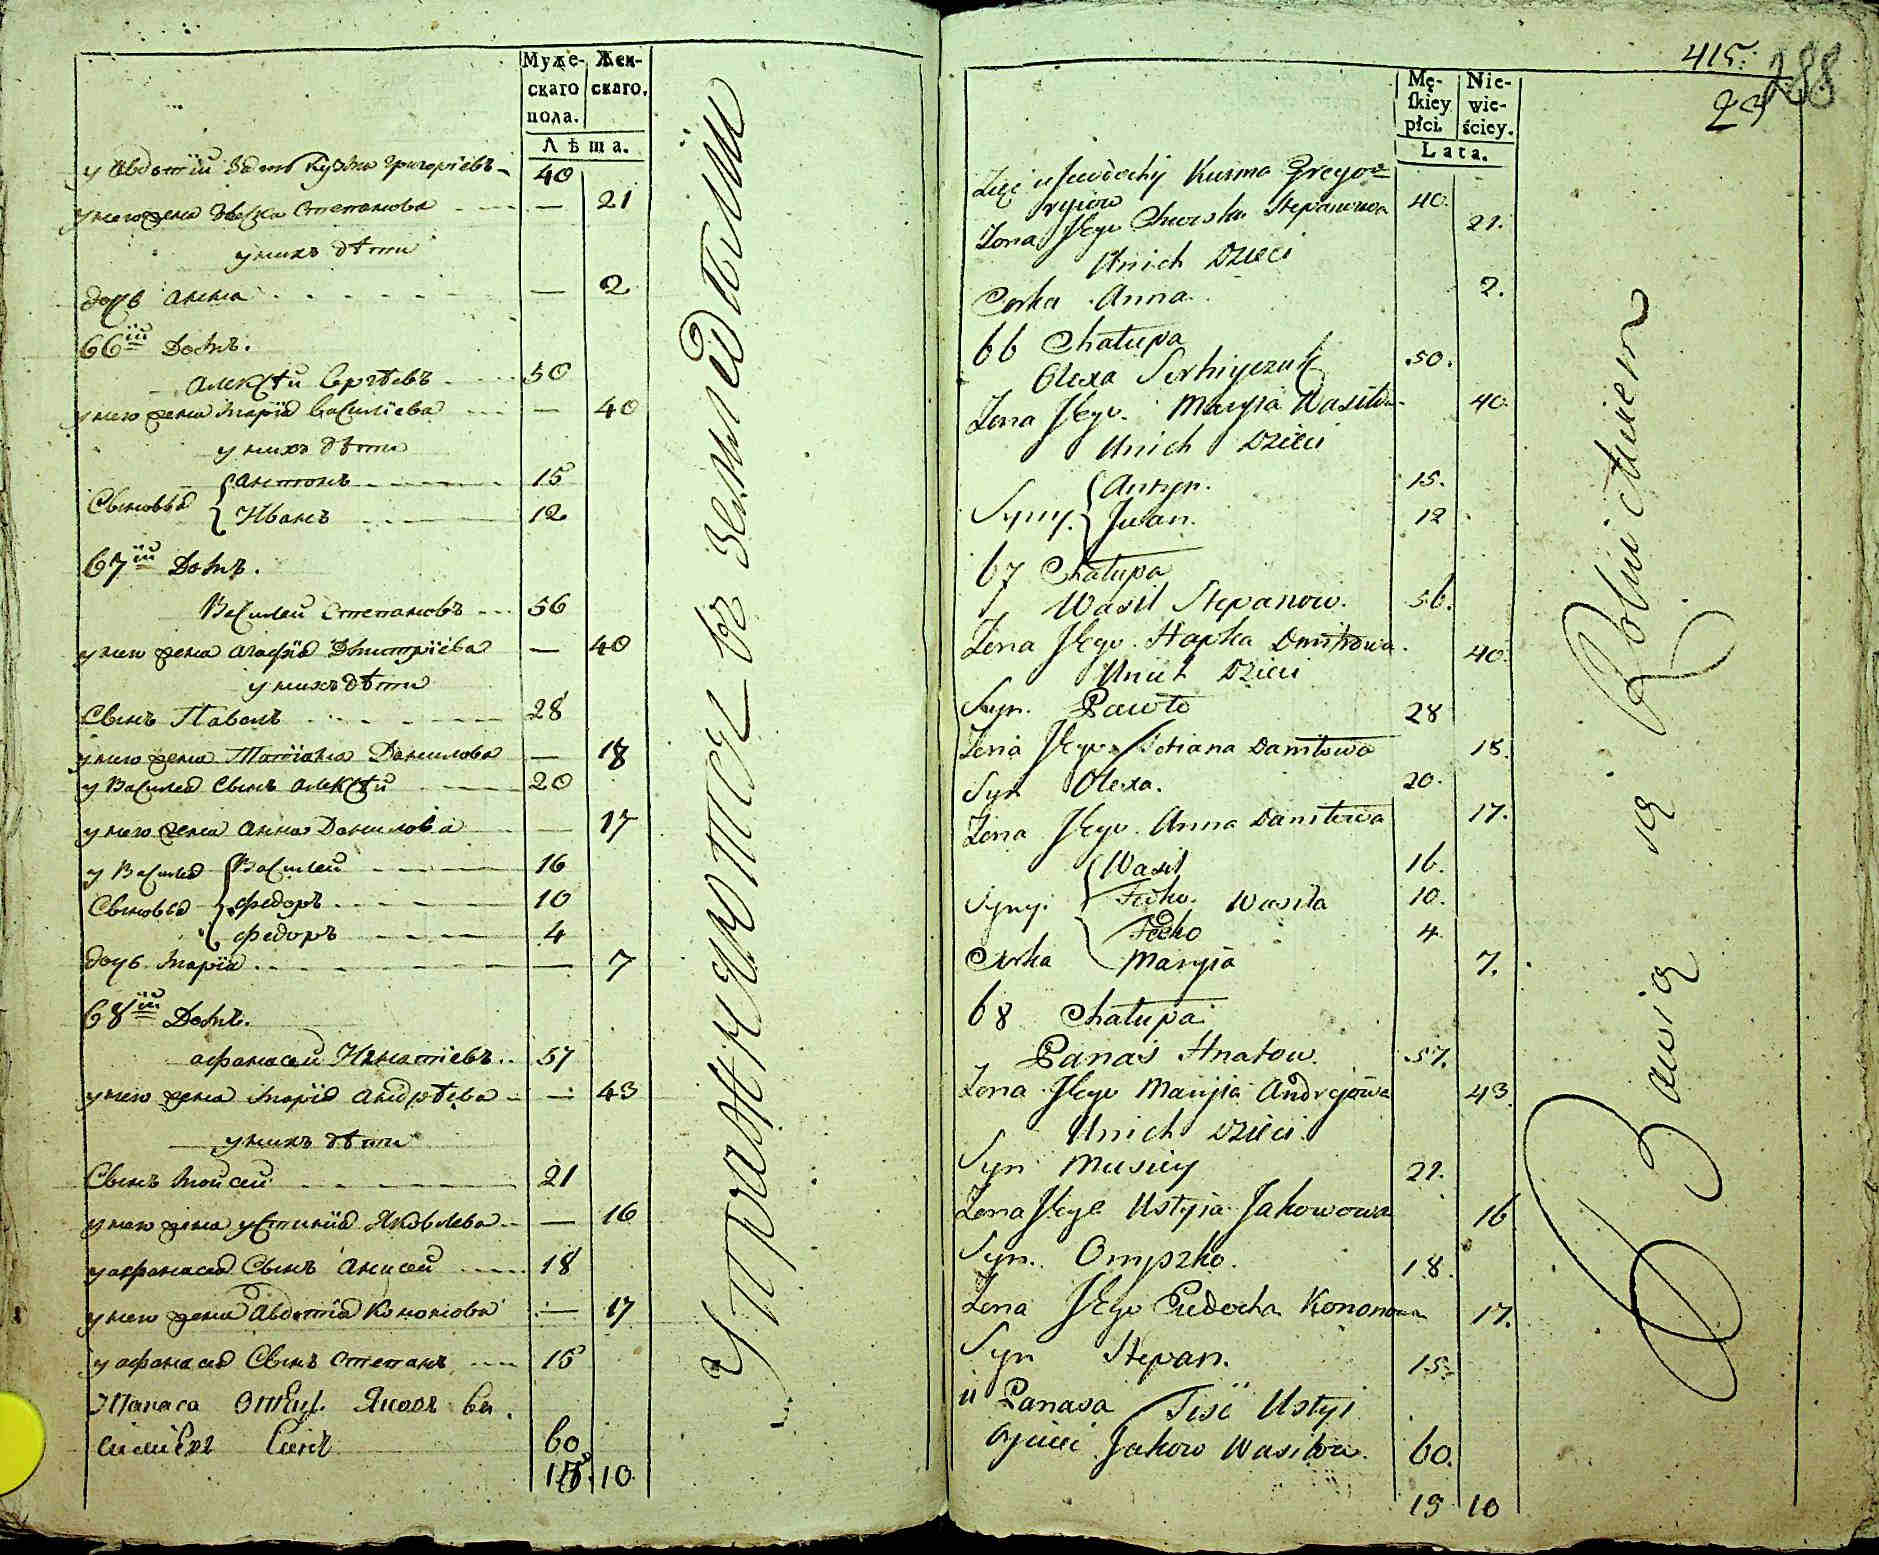 Муже-
скаго
пола.
Жен-
скаго.
Лѣта.
у Авдотїи Зять Кузма Григорїевъ 40
у него жена Степанова — 21
у нихъ дѣти
дочь Анна — 2
66ій Домъ.
Алексѣй Сергѣевъ 50
у него жена Марїя Василїева — 40
у нихъ дѣти
Сыновья { Антонъ 15
Иванъ 12
67ій Домъ.
Василей Степановъ 56
у него жена Агафїя Дмитрїева — 40
у нихъ дѣти
Сынъ Павелъ 28
у него жена Татїана Данилова — 18
у Василея Сынъ Алексѣй 20
у него жена Анна Данилова — 17
у Василея { Василей 16
Сыновья Федоръ 10
Федоръ 4
дочь Марїя — 7
68ій Домъ.
Афанасей Игнатїевъ 57
у него жена Марїя Андрѣева — 43
у нихъ дѣти
Сынъ Мойсей 21
у него жена Устинїя Яковлева — 16
у Афанасея Сынъ Анисей 18
у него жена Авдотїя Кононова — 17
у Афанасея Сынъ Степанъ 15
Яковъ
Сынъ 60
10
Упражняются въ земледѣлїи
415.
288
23
Mę-
ſkiey
płci.
Nie-
wie-
ściey.
Lata.
Zięć u Jewdochy Kuzma Gregor=
ryiow 40.
Zona Jego Stepanowa 21.
U nich Dzieci
Corka Anna 2.
66 Chałupa
Olexa Serhiyczuk 50.
Zona Jego Maryia Wasilow 40.
U nich Dzieci
Syny. { Antyn. 15.
Iwan. 12
67 Chałupa
Wasil Stepanow. 56.
Zona Jego Hapka Dmitrowa. 40.
U nich Dzieci
Syn. Pawło 28
Zona Jego Tetiana Daniłowa 18.
Syn Olexa. 20.
Zona Jego Anna Daniłowa 17.
{ Wasil 16.
Syny. Fedko. Wasila 10.
Fedko 4.
Corka Maryia 7.
68 Chałupa
Panas Hnatow. 57.
Zona Jego Maryia Andrejowa 43.
U nich Dzieci.
Syn Musiey 21.
Zona Jego Ustyia Jakowowa 16
Syn. Onyszko. 18.
Zona Jego Eudocha Kononowa 17.
Syn Stepan. 15.
u Panasa Teść Ustyi
Jakow Wasilow. 60.
19 10
Bawią się Rolnictwem